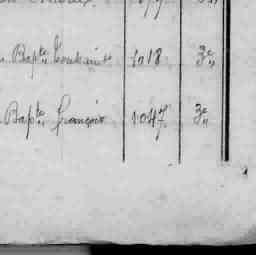 Bapte. Toussaint 1018 3e „
Bapte. François 1047 3e „